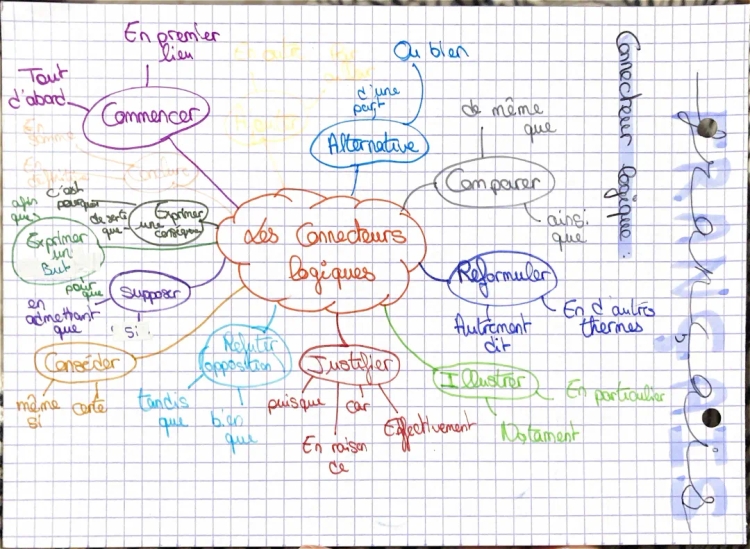 Français
FRANÇAIS
Connecteur logique :
Les Connecteurs
logiques
Commencer
En premier
lieu
Tout
d'abord
Alternative
d'une
part
Ou bien
Comparer
de même
que
ainsi
que
Reformuler
Autrement
dit
En d'autres
thermes
Illustrer
En particulier
Notament
Justifier
puisque
car
En raison
de
Effectivement
Réfuter
opposition
tandis
que
bien
que
Concéder
même
si
certe
Supposer
en
admettant
que
si
Exprimer
un
But
afin
que
pour
que
Exprimer
une
conséquence
c'est
pourquoi
de sorte
que
Conclure